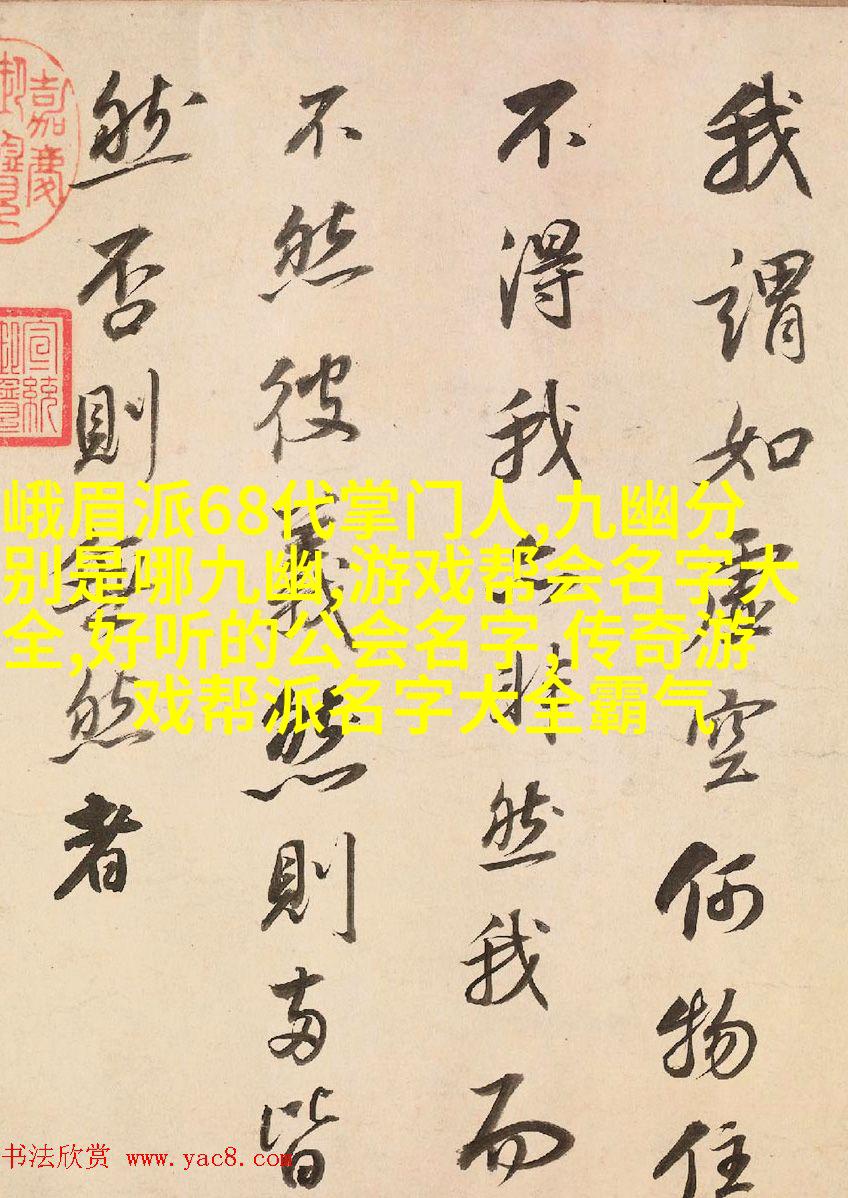 我謂如虛空何物住
不得我非然我而
不然彼義然則兩皆
然否則無然者
嘉慶
宣統
峨眉派68代掌门人,九幽分
别是哪九幽,游戏帮会名字大
全,好听的公会名字,传奇游
戏帮派名字大全霸气
书法欣赏 www.yac8.com